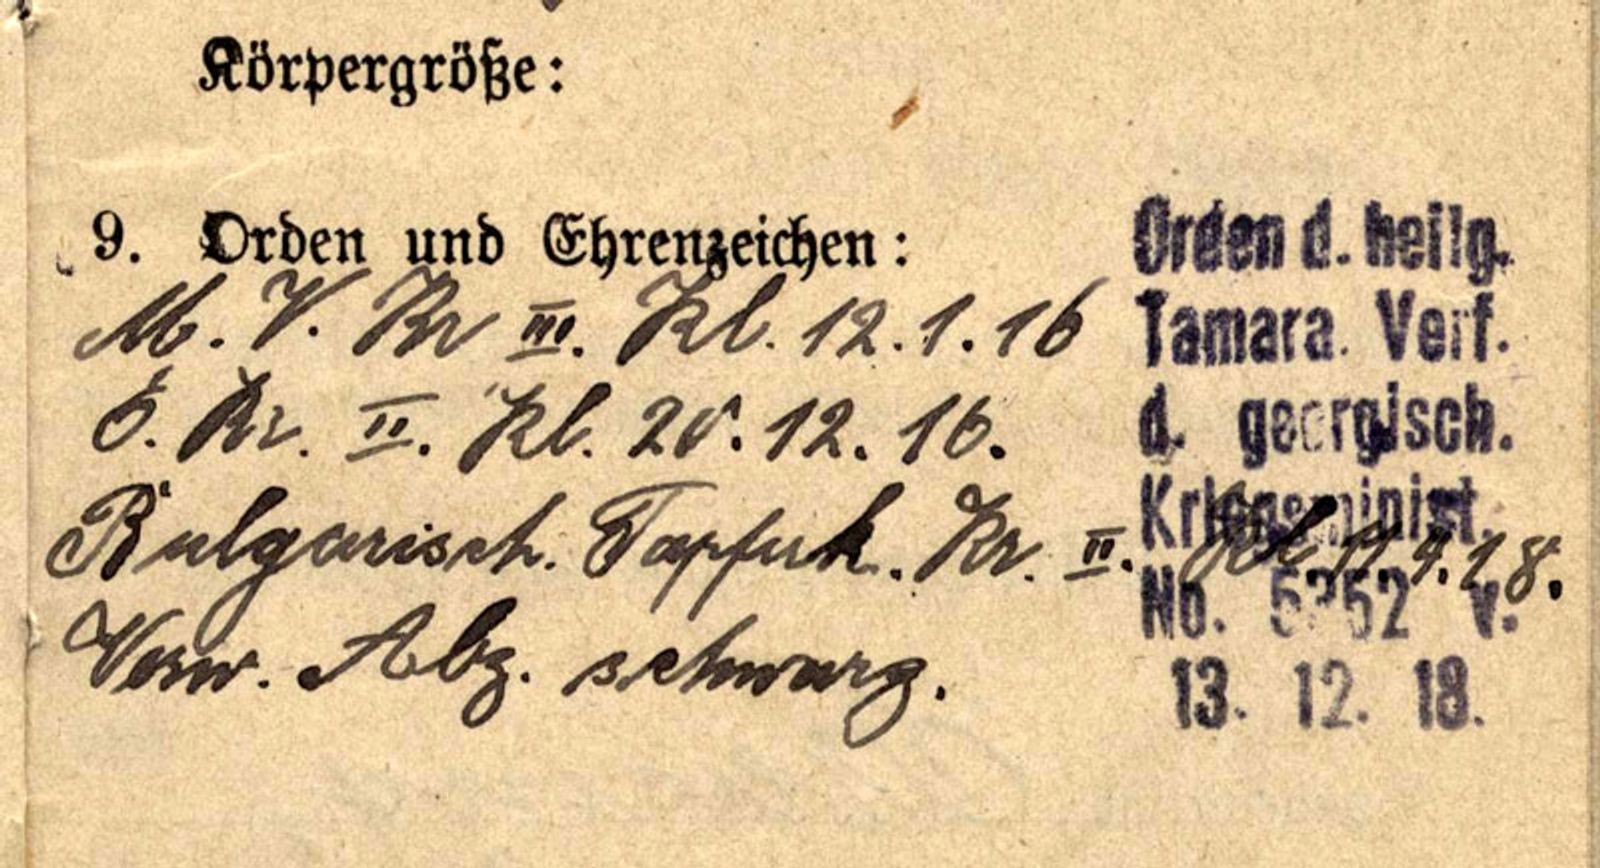 Körpergröße:
9. Orden und Ehrenzeichen:
M. V. Kr III. Kl. 12.1.16
E. Kr. II. Kl. 12. 16.
Bulgarisch. Tapferk. Kr. II. Kl. 18.
Verw. Abz. schwarz.
Orden d. heilg.
Tamara. Verf.
d. georgisch.
Kriegsminist.
No. 5352 v.
13. 12. 18.